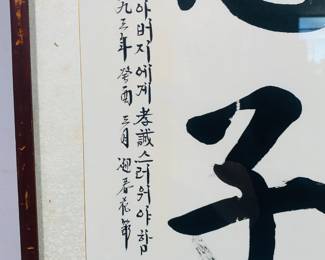 子
아버지에게 孝誠스러워야 함
九三年 癸酉 三月 迎春花節